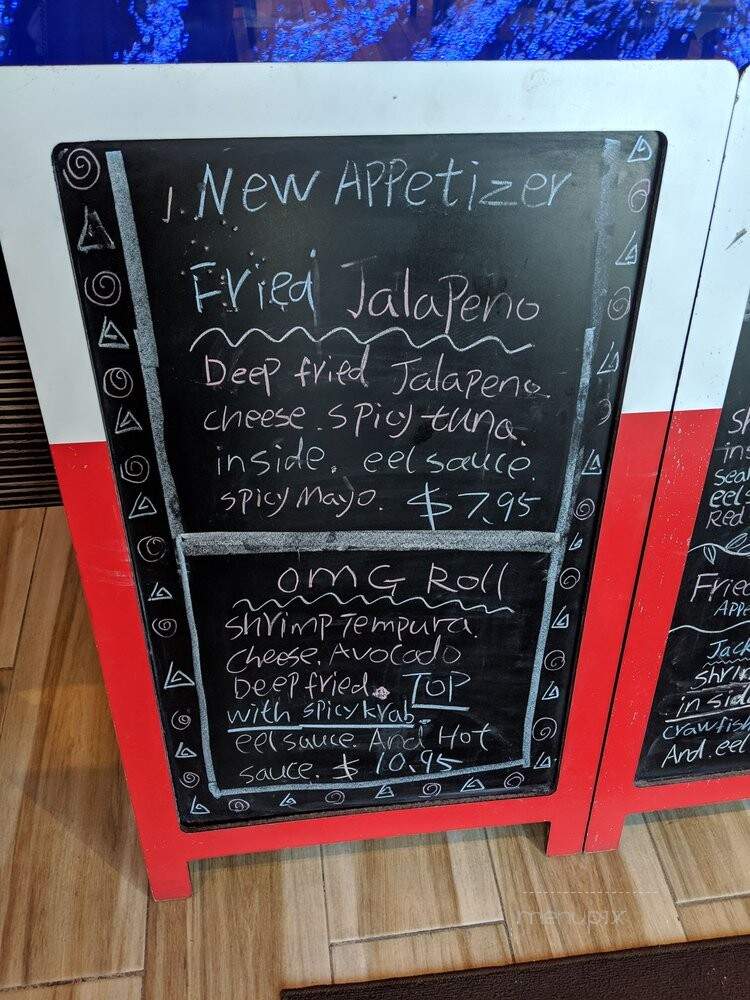 1. New APPetizer
Fried JalaPeno
Deep fried Jalapeno.
cheese. spicy tuna.
inside. eel sauce.
spicy Mayo. $7.95
OMG Roll
shrimp Tempura.
cheese. Avocado
Deep fried. TOP
with spicy krab.
eel sauce. And Hot
sauce. $10.95
Red
Fried
APPe
Jack
in sid
crawfish
And. eel
menupix